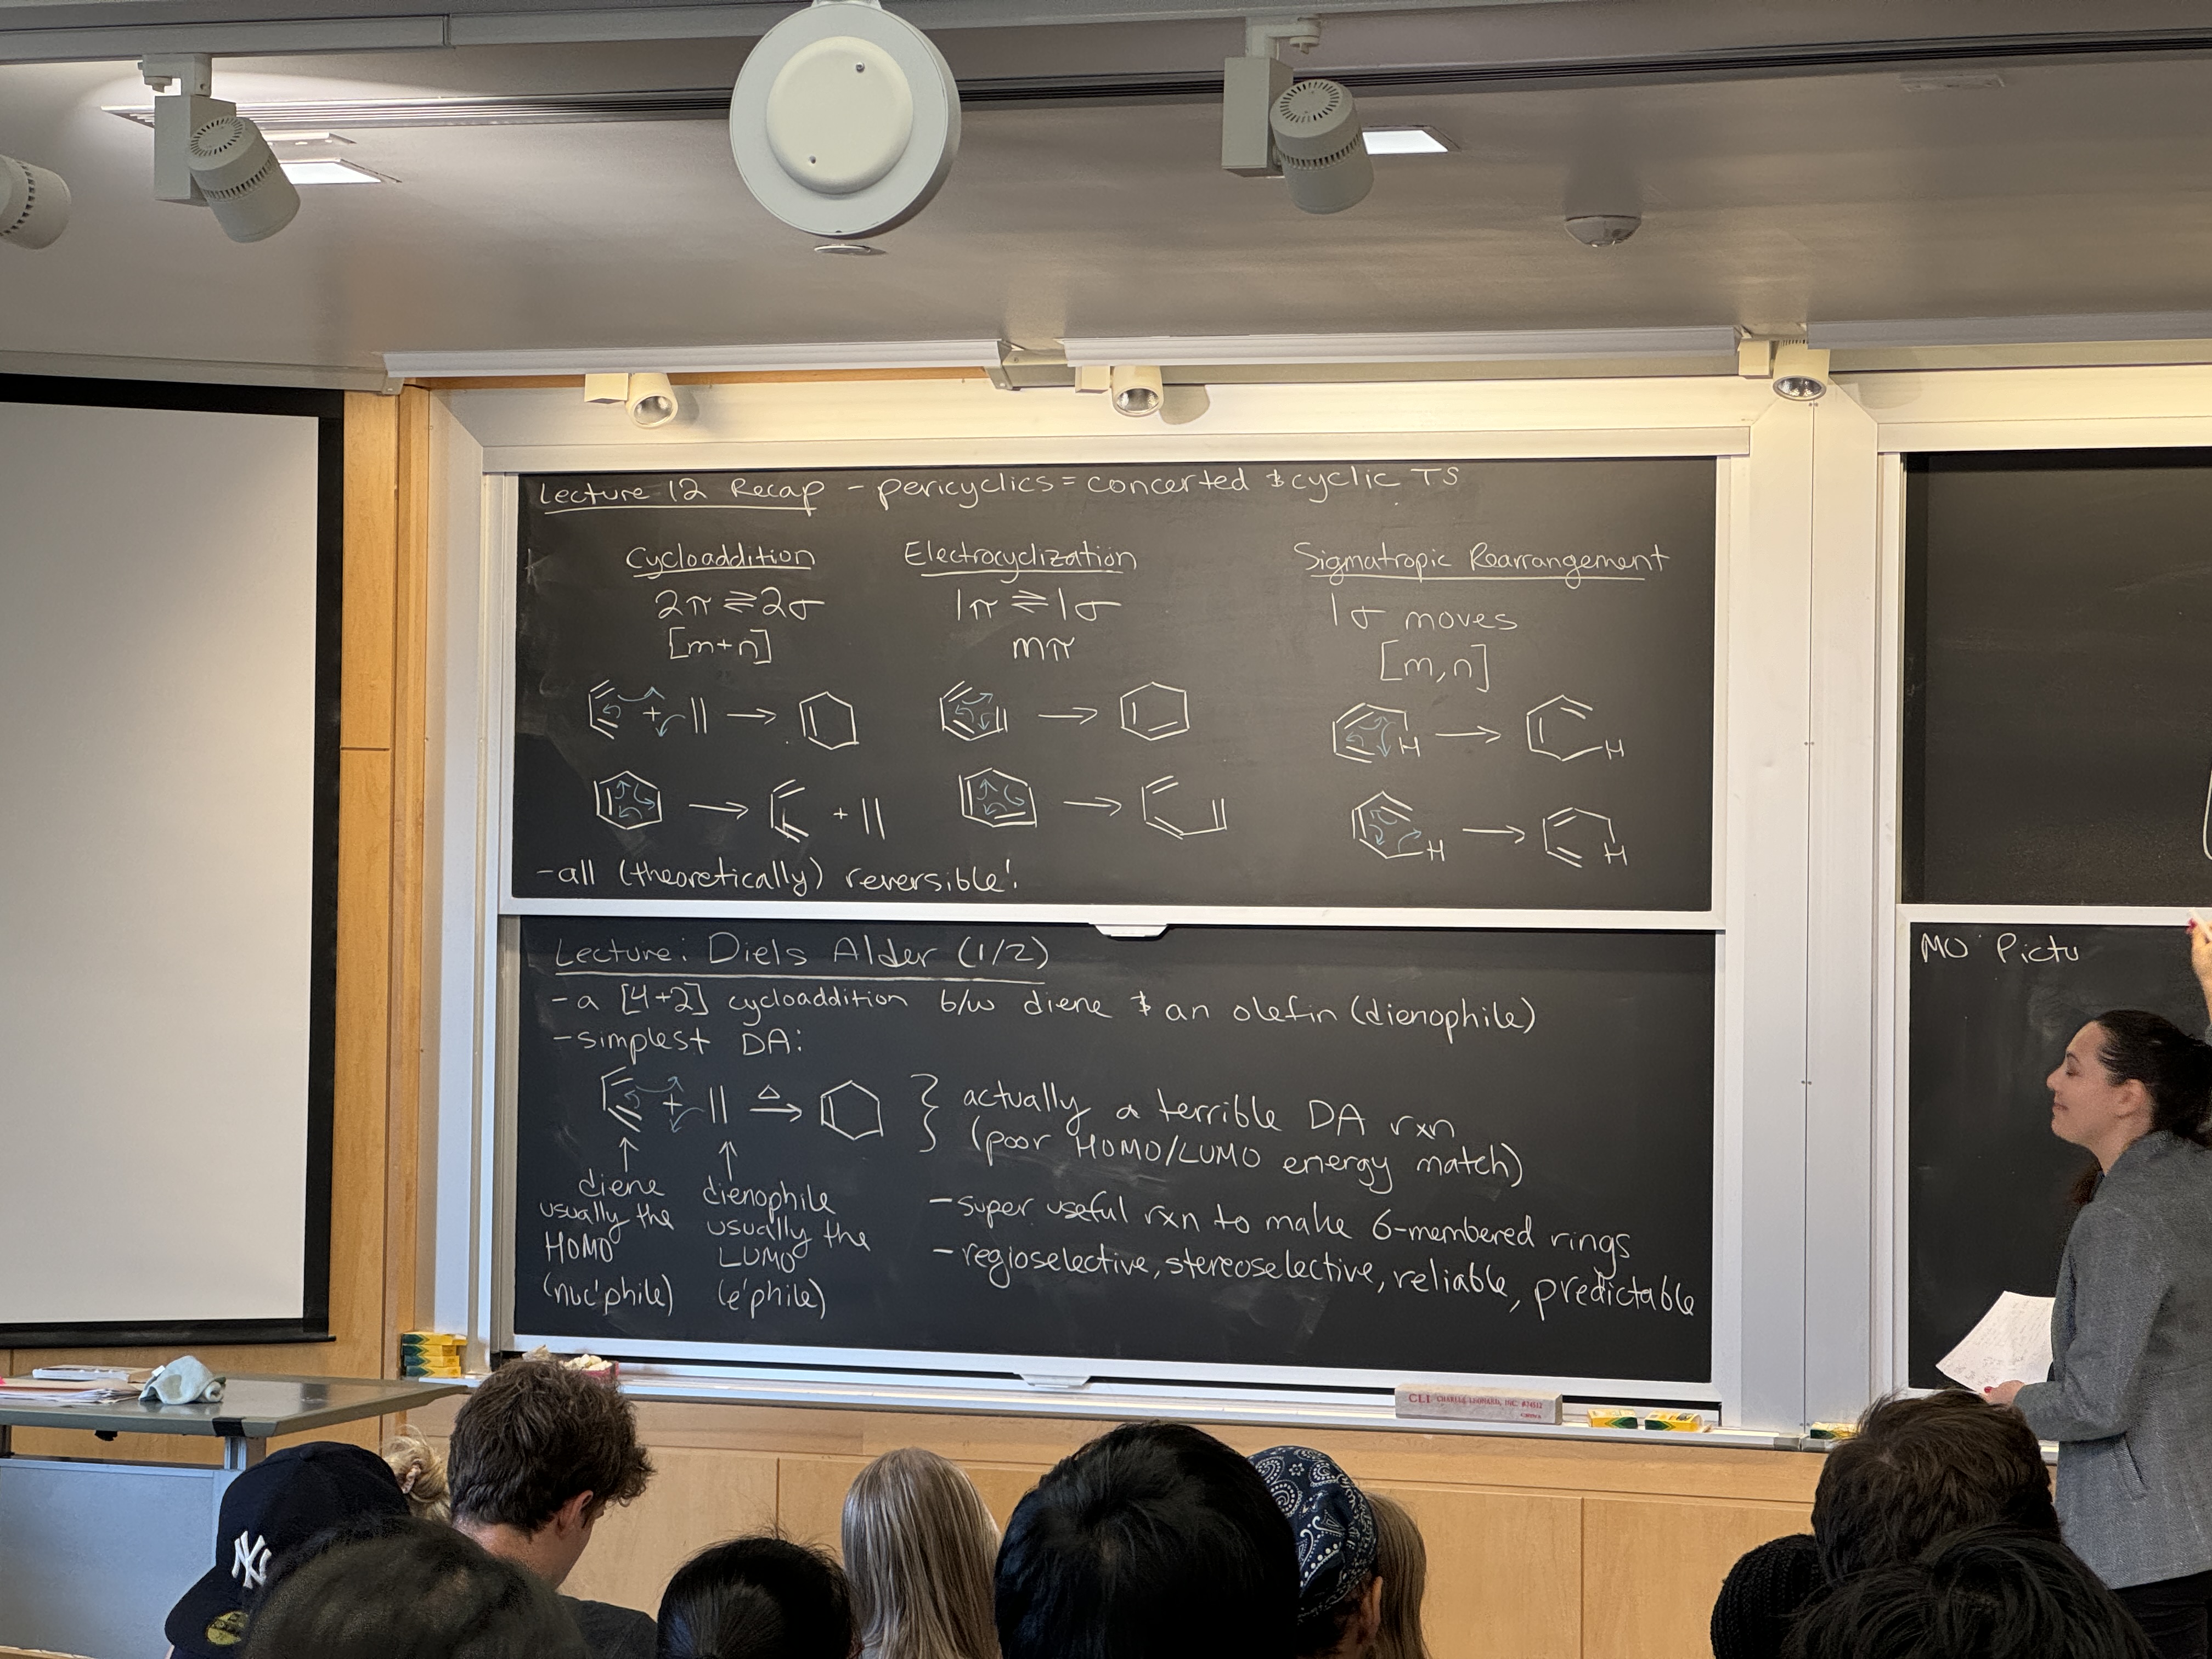 Lecture 12 Recap - pericyclics = concerted & cyclic TS
Cycloaddition
2π ⇌ 2σ
[m+n]
+ || →
→ + ||
Electrocyclization
1π ⇌ 1σ
mπ
→
→
Sigmatropic Rearrangement
1σ moves
[m,n]
H → H
H → H
-all (theoretically) reversible!
Lecture: Diels Alder (1/2)
-a [4+2] cycloaddition b/w diene & an olefin (dienophile)
-simplest DA:
+ || Δ →
} actually a terrible DA rxn
(poor HOMO/LUMO energy match)
↑
diene
usually the
HOMO
(nuc'phile)
↑
dienophile
usually the
LUMO
(e'phile)
-super useful rxn to make 6-membered rings
-regioselective, stereoselective, reliable, predictable
MO Pictu
CLI CHARLES LEONARD, INC.
NY